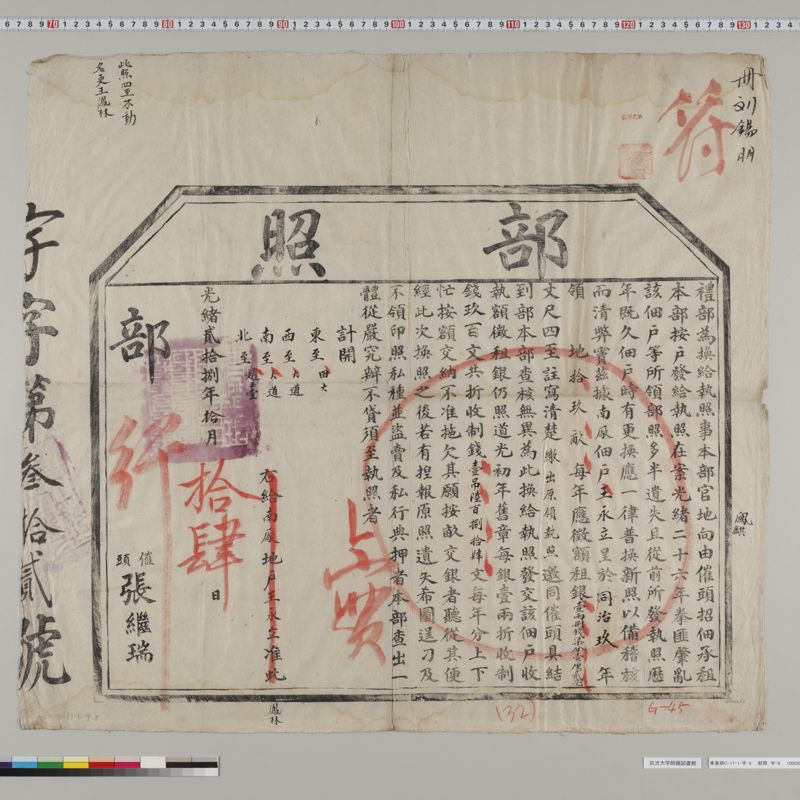 冊劉錫朋
符
部照
禮部為換給執照事本部官地向由催頭招佃承租
本部按戶發給執照在案光緒二十六年拳匪肇亂
該佃戶等所領部照多半遺失且從前所發執照歷
年既久佃戶時有更換應一律普換新照以備稽核
而清弊竇茲據南廠佃戶王永立呈於同治玖年
領 地拾玖畝 每年應徵額租銀
丈尺四至註寫清楚繳出原領執照邀同催頭具結
到部本部查核無異為此換給執照發交該佃戶收
執額徵租銀仍照道光初年舊章每銀壹兩折收制
錢玖百文共折收制錢壹吊陸百捌拾肆文每年分上下
忙按額交納不准拖欠其願按畝交銀者聽從其便
經此次換照之後若有捏報原照遺失希圖逞刁及
不領印照私種並盜賣及私行典押者本部查出一
體從嚴究辦不貸須至執照者
計開
東至
西至大道
南至大道
北至
右給南廠地戶王永立准此
鳳林
光緒貳拾捌年拾月 拾肆 日
部
行
催頭 張繼瑞
此照四至不動
名更王鳳林
字字第叁拾貳號
鳳麒
(32)
G-45
筑波大学附属図書館
70
80
90
100
110
120
130